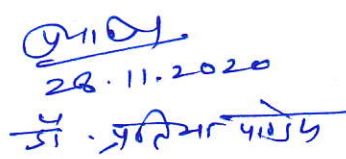 28.11.2020
डॉ. प्रतिभा पाण्डेय